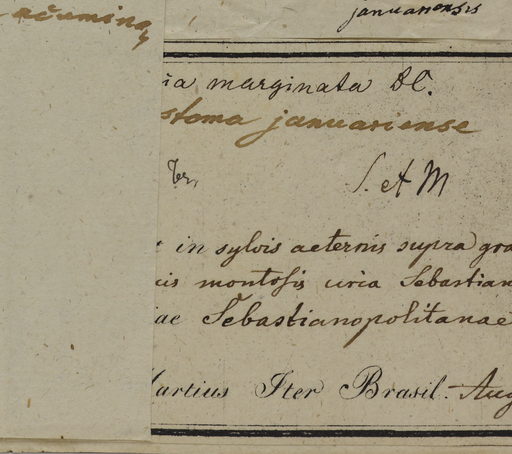 acuming
januariensis
ia marginata DC.
stoma januariense
Tr.
S. et M
in sylvis aeternis supra gra
cis montosis circa Sebastian
iae Sebastianopolitanae
Martius Iter Brasil. Aug